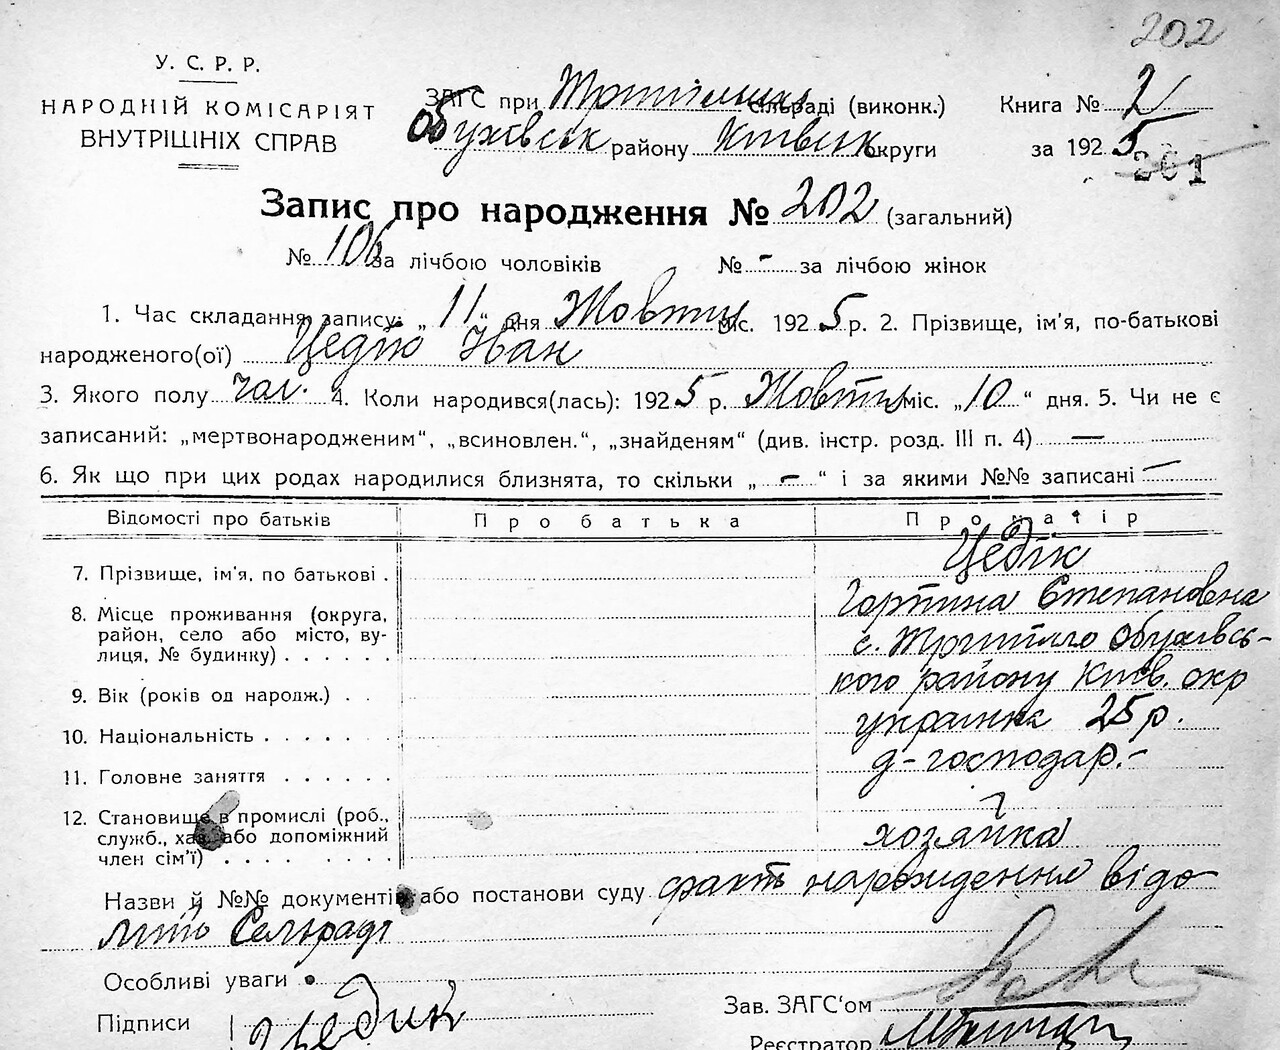 202
У. С. Р. Р.
НАРОДНІЙ КОМІСАРІЯТ
ВНУТРІШНІХ СПРАВ
ЗАГС при сільраді (виконк.) Книга № 2
Обухівськ району Київськ округи за 1925
201
Запис про народження № 202 (загальний)
№ 106 за лічбою чоловіків № - за лічбою жінок
1. Час складання запису: „11“ дня Жовтня міс. 1925 р. 2. Прізвище, ім'я, по-батькові
народженого(ої) Цедік Іван
3. Якого полу чол. 4. Коли народився(лась): 1925 р. Жовтня міс. „10“ дня. 5. Чи не є
записаний: „мертвонародженим“, „всиновлен.“, „знайденям“ (див. інстр. розд. III п. 4) —
6. Як що при цих родах народилися близнята, то скільки „-“ і за якими №№ записані —
Відомості про батьків Про батька Про матір
7. Прізвище, ім'я, по батькові . Цедік
Горпина Степановна
8. Місце проживання (округа,
район, село або місто, ву-
лиця, № будинку) . . . . . . с. Трипілло Обухівсь-
9. Вік (років од народж.) . . кого району Київ. окр
10. Національність . . . . . . українка 25 р.
11. Головне заняття . . . . . . д-господар.-
12. Становище в промислі (роб.,
служб., хаз. або допоміжний
член сім'ї) . . . . . . хозяйка
Назви й №№ документів або постанови суду факт народження відо-
мий Сельраді
Особливі уваги
Зав. ЗАГС'ом
Підписи Цедик
Реєстратор